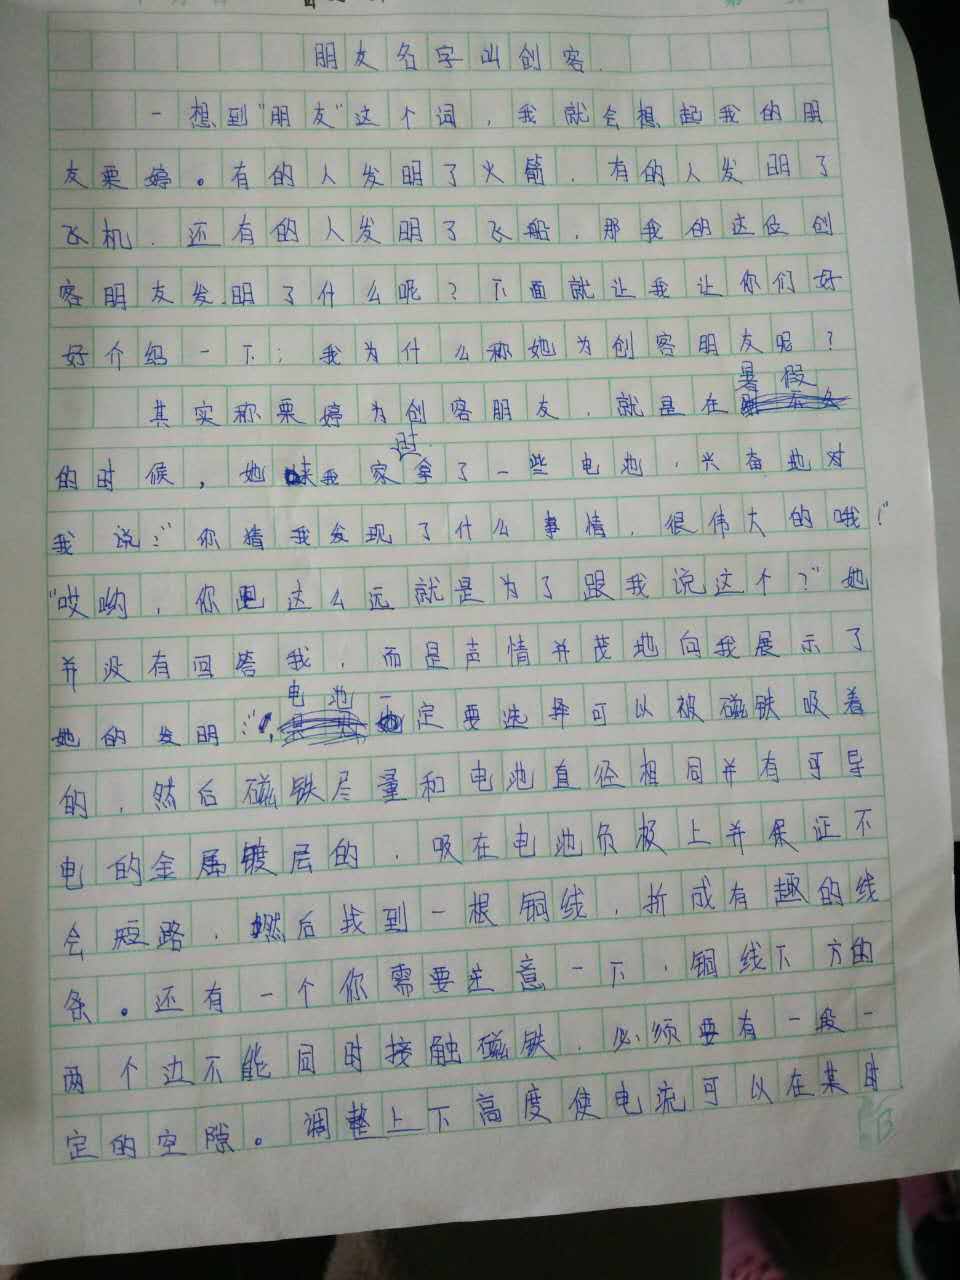 朋友名字叫创客
一想到"朋友"这个词，我就会想起我的朋
友栗婷。有的人发明了火箭，有的人发明了
飞机，还有的人发明了飞船，那我的这位创
客朋友发明了什么呢？下面就让我让你们好
好介绍一下：我为什么称她为创客朋友呢？
其实称栗婷为创客朋友，就是在暑假
的时候，她来我家时拿了一些电池，兴奋地对
我说："你猜我发现了什么事情，很伟大的哦！"
"哎哟，你跑这么远就是为了跟我说这个？"她
并没有回答我，而是声情并茂地向我展示了
她的发明："电池一定要选择可以被磁铁吸着
的，然后磁铁尽量和电池直径相同并有可导
电的金属镀层的，吸在电池负极上并保证不
会短路，然后找到一根铜线，折成有趣的线
条。还有一个你需要注意一下，铜线下方的
两个边不能同时接触磁铁，必须要有一段一
定的空隙。调整上下高度使电流可以在某时